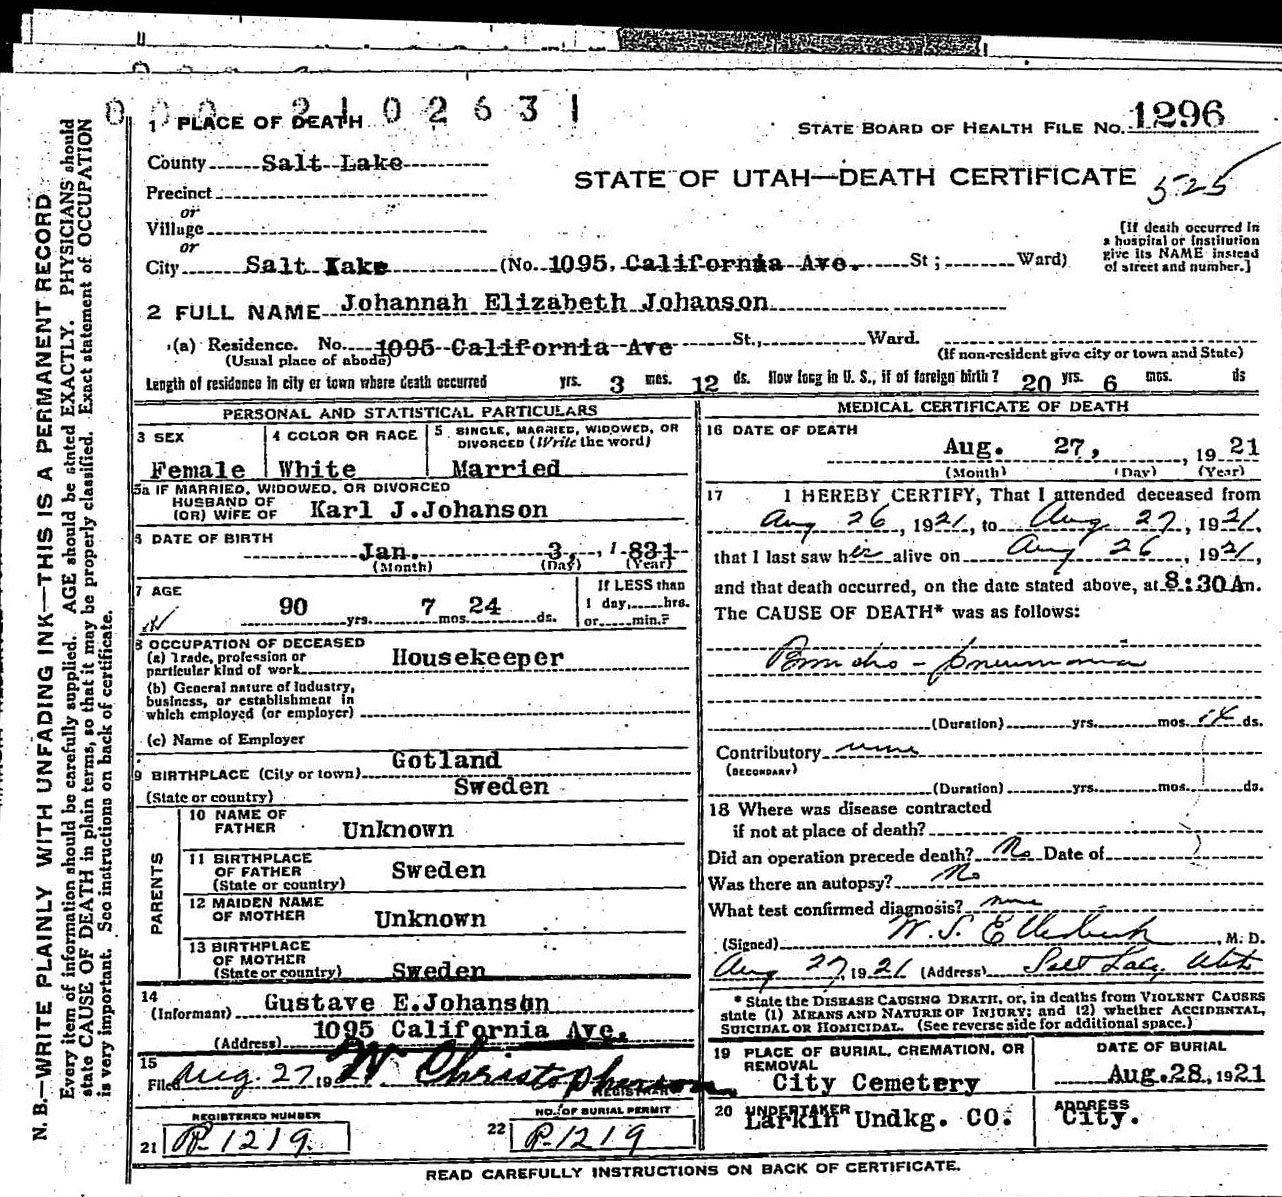 0 0 0 2 1 0 2 6 3 1
1 PLACE OF DEATH
STATE BOARD OF HEALTH FILE NO. 1296
County Salt Lake
STATE OF UTAH—DEATH CERTIFICATE 525
Precinct
or
Village
or
[If death occurred in a hospital or institution give its NAME instead of street and number.]
City Salt Lake (No. 1095. California Ave. St; Ward)
2 FULL NAME Johannah Elizabeth Johanson
(a) Residence. No. 1095 California Ave St., Ward.
(Usual place of abode) (If non-resident give city or town and State)
Length of residence in city or town where death occurred yrs. 3 mos. 12 ds. How long in U. S., if of foreign birth? 20 yrs. 6 mos. ds
PERSONAL AND STATISTICAL PARTICULARS
3 SEX
Female
4 COLOR OR RACE
White
5 SINGLE, MARRIED, WIDOWED, OR DIVORCED (Write the word)
Married
5a IF MARRIED, WIDOWED, OR DIVORCED
HUSBAND OF
(OR) WIFE OF Karl J.Johanson
6 DATE OF BIRTH
Jan. 3, 1831
(Month) (Day) (Year)
7 AGE
90 yrs. 7 mos. 24 ds.
If LESS than
1 day, hrs.
or min.?
8 OCCUPATION OF DECEASED
(a) Trade, profession or
particular kind of work Housekeeper
(b) General nature of industry,
business, or establishment in
which employed (or employer)
(c) Name of Employer
9 BIRTHPLACE (City or town) Gotland
(State or country) Sweden
PARENTS
10 NAME OF FATHER Unknown
11 BIRTHPLACE OF FATHER (State or country) Sweden
12 MAIDEN NAME OF MOTHER Unknown
13 BIRTHPLACE OF MOTHER (State or country) Sweden
14
(Informant) Gustave E.Johanson
(Address) 1095 California Ave.
15
Filed Aug. 27 1921 W Christopherson
REGISTRAR
REGISTERED NUMBER
21 P-1219.
NO. OF BURIAL PERMIT
22 P-1219
MEDICAL CERTIFICATE OF DEATH
16 DATE OF DEATH
Aug. 27, , 19 21
(Month) (Day) (Year)
17 I HEREBY CERTIFY, That I attended deceased from
Aug 26, 1921, to Aug 27, 1921,
that I last saw her alive on Aug 26, 1921,
and that death occurred, on the date stated above, at 8:30 Am.
The CAUSE OF DEATH* was as follows:
Broncho-pneumonia
(Duration) yrs. mos. ds.
Contributory none
(SECONDARY)
(Duration) yrs. mos. ds.
18 Where was disease contracted
if not at place of death?
Did an operation precede death? No Date of
Was there an autopsy? No
What test confirmed diagnosis? none
(Signed) W. S. Ellerbeck, M. D.
Aug 27, 1921 (Address) Salt Lake, Utah
* State the DISEASE CAUSING DEATH, or, in deaths from VIOLENT CAUSES
state (1) MEANS AND NATURE OF INJURY; and (2) whether ACCIDENTAL,
SUICIDAL OR HOMICIDAL. (See reverse side for additional space.)
19 PLACE OF BURIAL, CREMATION, OR REMOVAL
City Cemetery
DATE OF BURIAL
Aug.28, 1921
20 UNDERTAKER
Larkin Undkg. CO.
ADDRESS
City.
READ CAREFULLY INSTRUCTIONS ON BACK OF CERTIFICATE.
N. B.—WRITE PLAINLY WITH UNFADING INK—THIS IS A PERMANENT RECORD
Every item of information should be carefully supplied. AGE should be stated EXACTLY. PHYSICIANS should
state CAUSE OF DEATH in plain terms, so that it may be properly classified. Exact statement of OCCUPATION
is very important. See instructions on back of certificate.